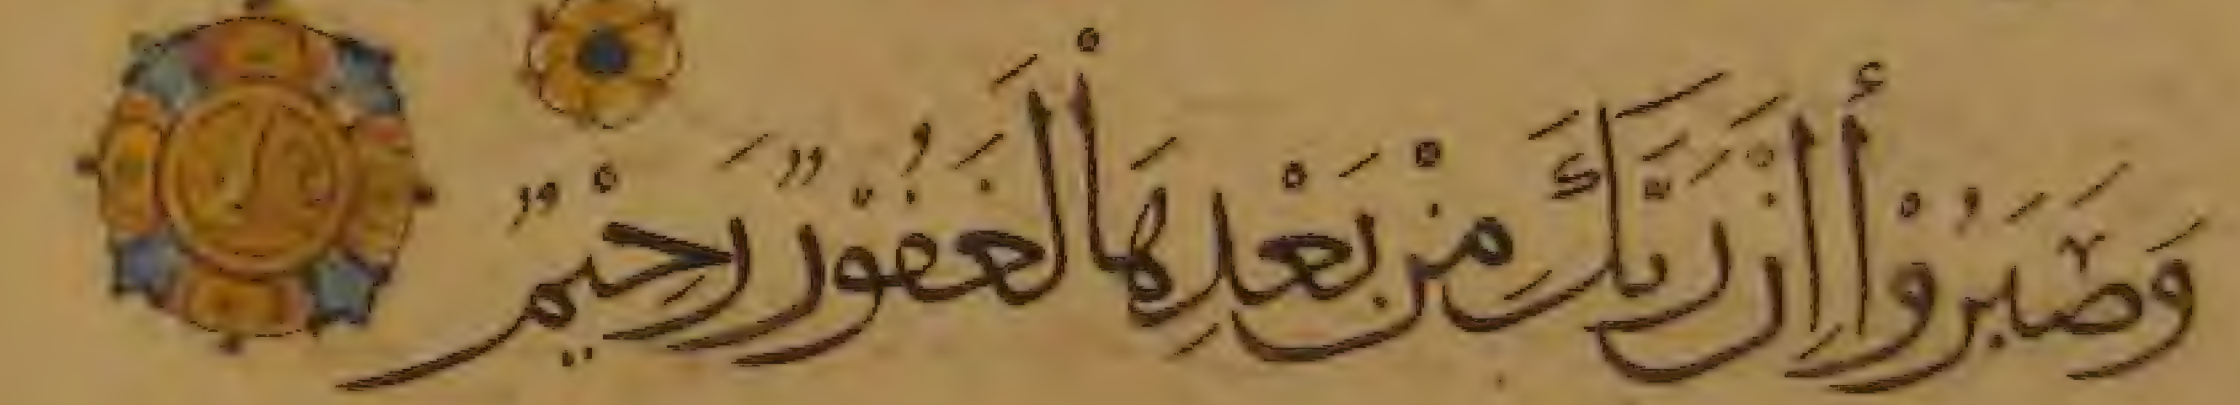 وَصَبَرُوْا إِنَّ رَبَّكَ مِنْ بَعْدِهَا لَغَفُوْرٌ رَحِيْمٌ